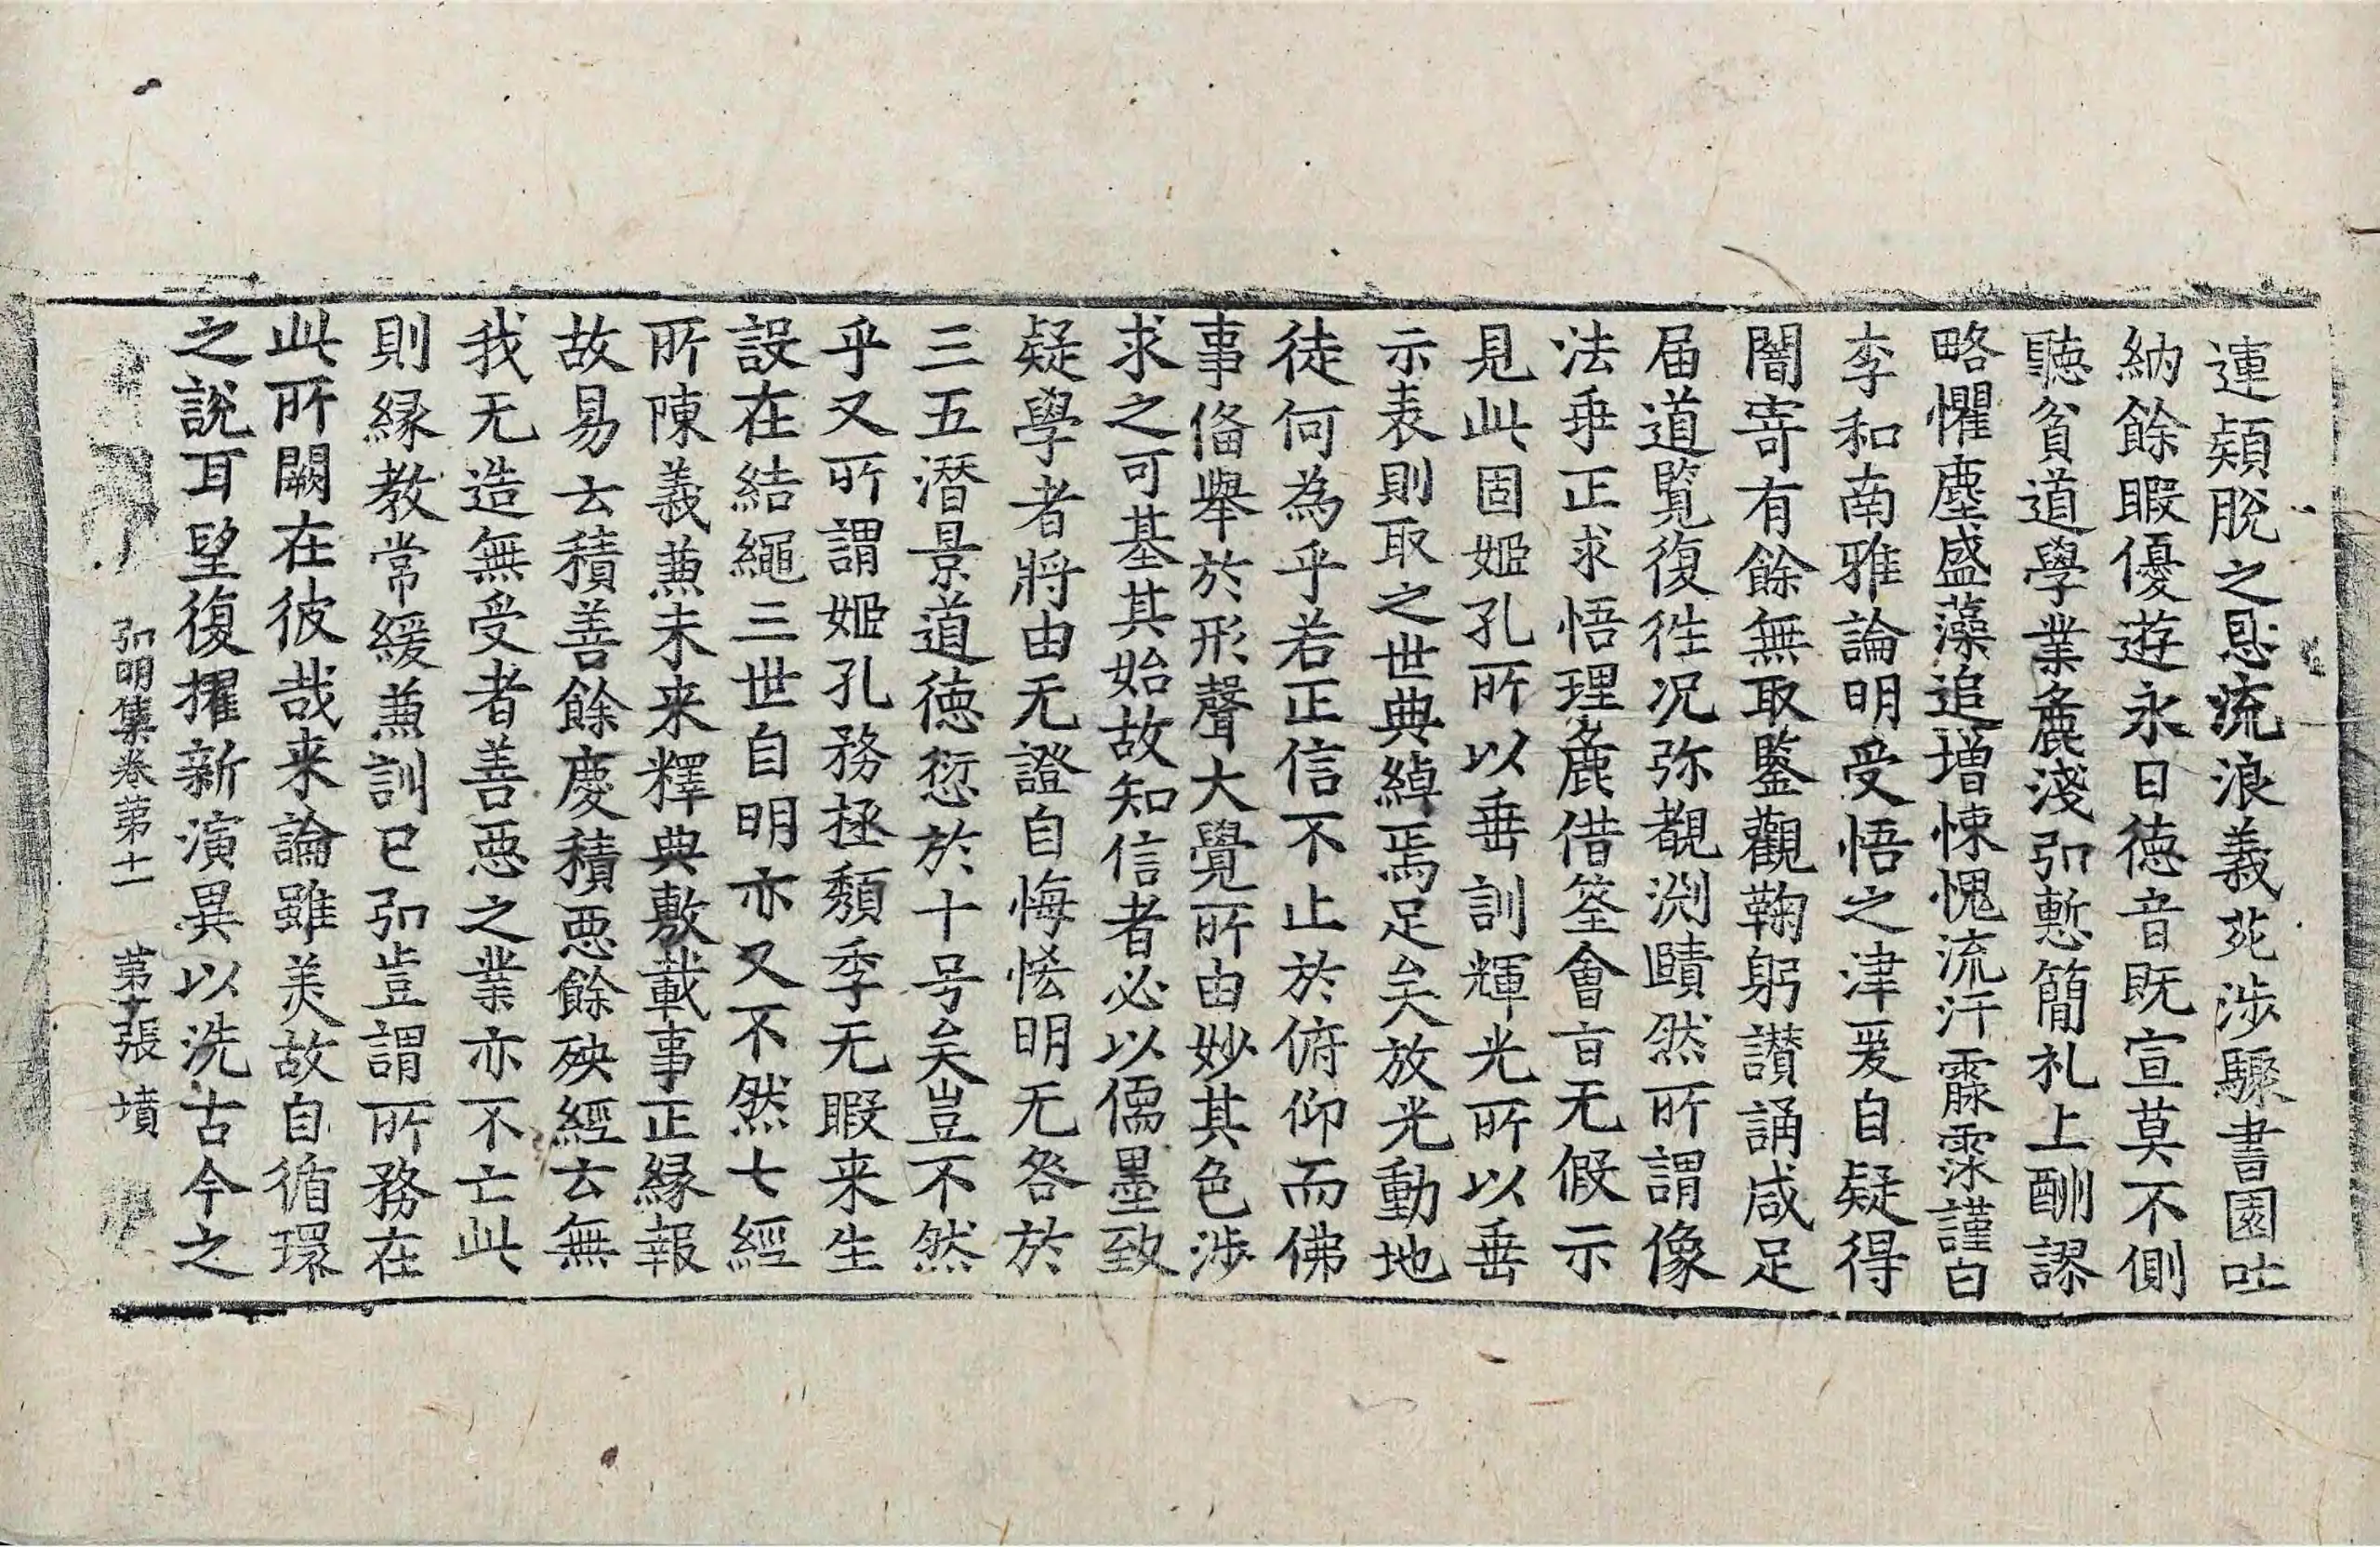 連類脫之悬流浪義苑涉驟書園吐
納餘暇優遊永日德音既宣莫不側
聽貧道學業麁淺弘慙簡礼上酬謬
略懼塵盛藻追增悚愧流汗霢霂謹白
李和南雅論明受悟之津爰自疑得
闇寄有餘無取鑒觀鞠躬讃誦咸足
届道覽復徃况弥覩渕賾然所謂像
法垂正求悟理麁借筌會旨无假示
見此固姬孔所以垂訓輝光所以垂
示表則取之世典綽焉足矣放光動地
徒何為乎若正信不止於俯仰而佛
事俻舉於形聲大覺所由妙其色涉
求之可基其始故知信者必以儒墨致
疑學者將由无證自悔恡明无咎於
三五潛景道德愆於十号矣豈不然
乎又所謂姬孔務拯頹季无暇来生
設在結繩三世自明亦又不然七經
所陳義兼未来釋典敷載事正緣報
故易云積善餘慶積惡餘殃經云無
我无造無受者善惡之業亦不亡此
則緣教常緩兼訓已弘豈謂所務在
此所闕在彼哉来論雖美故自循環
之說耳望復擢新演異以洗古今之
弘明集卷第十一 第十張 墳